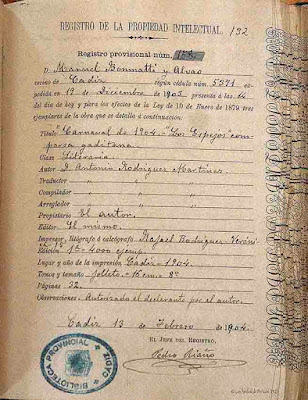 REGISTRO DE LA PROPIEDAD INTELECTUAL.
132
Registro provisional núm. 132
D. Manuel Bonmatti y Alvao
vecino de Cadiz según cédula núm. 5371
expedida en 19 de Diciembre de 1903, presenta á las 14
del día de hoy y para los efectos de la Ley de 10 de Enero de 1879 tres
ejemplares de la obra que se detalla á continuación:
Título Carnaval de 1904 - Los Espejos com-
parsa gaditana
Clase Literaria
Autor D. Antonio Rodriguez Martinez
Traductor " " "
Compilador " " "
Arreglador " " "
Propietario El autor.
Editor El mismo.
Impresor, litógrafo ó calcógrafo Rafael Rodriguez
Edición 1ª 4000 ejemp.
Lugar y año de la impresión Cadiz 1904.
Tomos y tamaño folleto - 8º
Páginas 32.
Observaciones. Autorizado el declarante por el autor.
Cadiz 13 de Febrero de 1904.
EL JEFE DEL REGISTRO,
Pedro Riaño
BIBLIOTECA PROVINCIAL
CADIZ